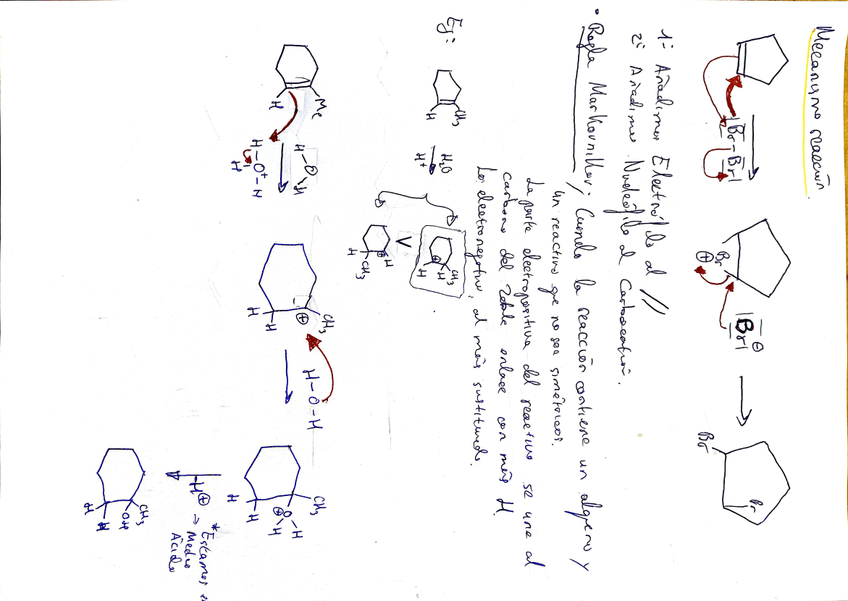 Mecanismo reacción
Br Br
Br
⊕
Br ⊖
Br
Br
1: Añadimos Electrófilo al //
2: Añadimos Nucleófilo al Carbocatión.
• Regla Markovnikov; Cuando la reacción contiene un alqueno y
un reactivo que no sea simétricos.
La parte electropositiva del reactivo se une al
carbono del doble enlace con más H
La electronegativa, al más sustituido.
Ej:
CH3
H
H2O
H+
CH3
H
H
⊕
V
⊕
H
H
CH3
Me
H
H-O
H
H-O+-H
H
CH3
⊕
H
H
H-O-H
CH3
O-H
⊕
H
H
H
-H⊕
→
* Estamos
Medio
Ácido
CH3
OH
H
H